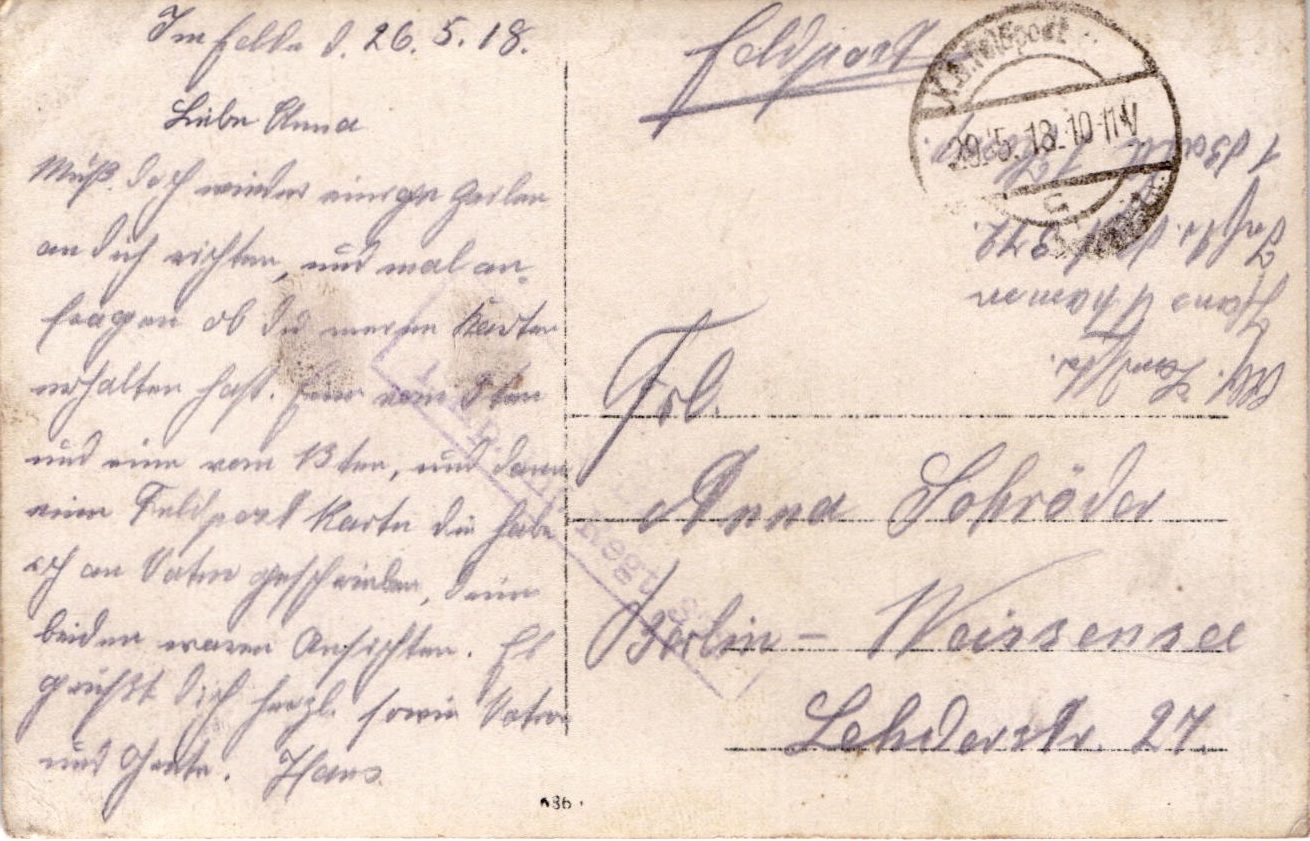 Im Felde d. 26.5.18.
Liebe Anna
Muß doch wieder einige Zeilen
an dich richten, und mal an-
fragen ob du meine Karten
erhalten hast. Eine vom 9ten
und eine vom 13ten, und dann
eine Feldpost Karte die habe
ich an Vater geschrieben, deine
beiden waren Ansichten. Es
grüßt dich herzl. sowie Vater
und Grete. Hans
Feldpost
K.D. Feldpost
29.5.18. 10-11V
Frl.
Anna Schröder
Berlin - Weissensee
Lehderstr. 27.
Abs. Landstr.
Hans
Inftr. Regt.
1
Regt.
86